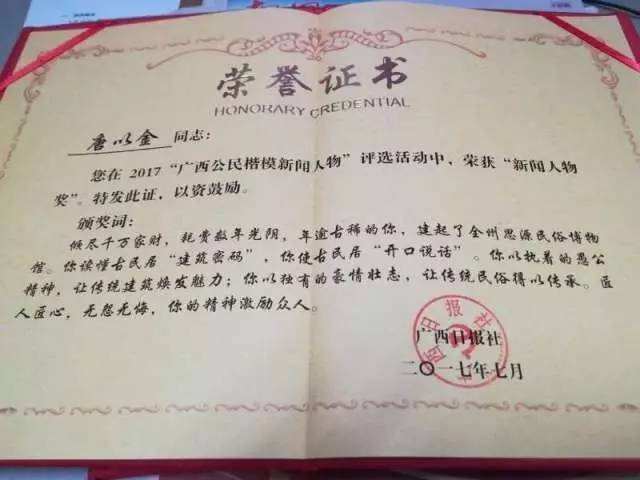 荣誉证书
HONORARY CREDENTIAL
唐以金 同志：
您在 2017 “广西公民楷模新闻人物” 评选活动中，荣获 “新闻人物
奖”。特发此证，以资鼓励。
颁奖词：
倾尽千万家财，耗费数年光阴，年逾古稀的你，建起了全州思源民俗博物
馆。你读懂古民居 “建筑密码”，你使古民居 “开口说话”。你以执着的愚公
精神，让传统建筑焕发魅力；你以独有的豪情壮志，让传统民俗得以传承。匠
人匠心，无怨无悔，你的精神激励众人。
广西日报社
二〇一七年七月